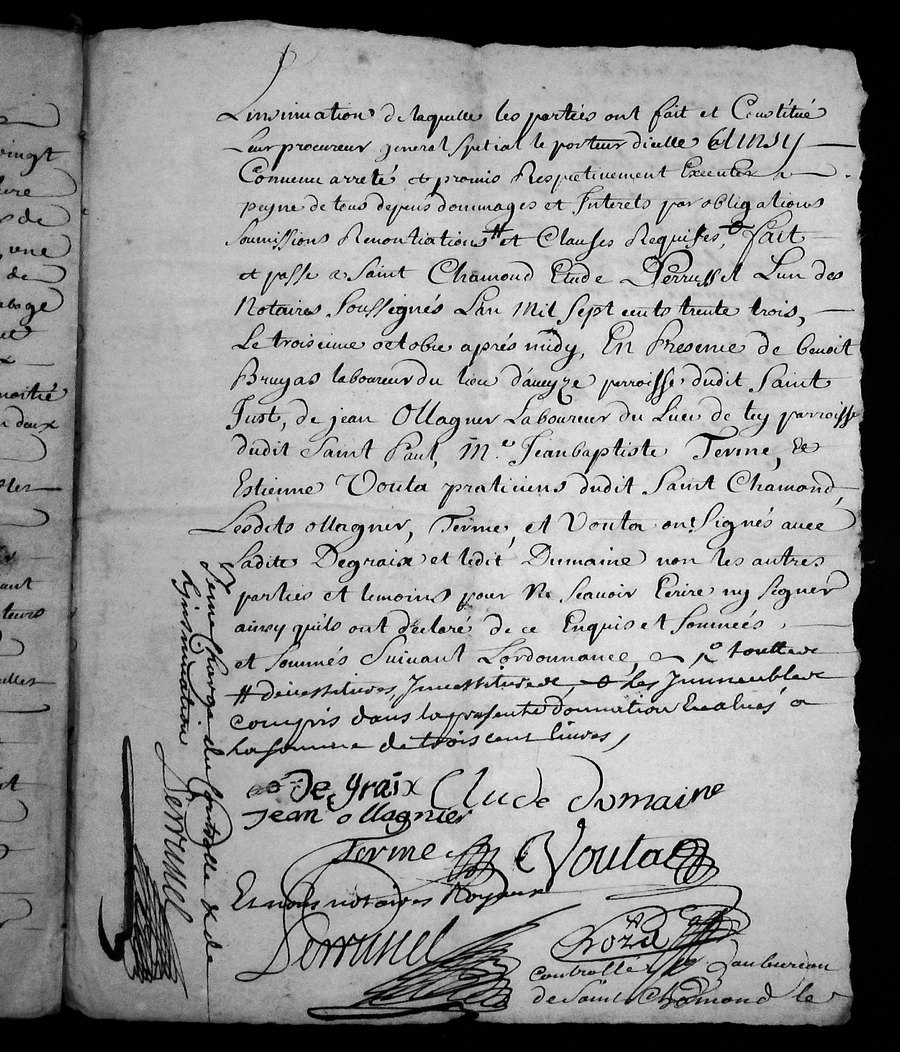 Linsinuation de laquelle les parties ont fait et Constitué
Leur procureur general spetial le porteur dicelle ainsy
Convenu arreté et promis Respetivement Executer a
payne de tous depens dommages et Interets par obligations
Soumissions Renontiations # et Clauses Requises, fait
et passe a Saint Chamond Etude Perrussel Lun des
Notaires Soussignés Lan Mil Sept cents trente trois,
Le troisieme octobre aprés midy, En Presence de benoit
Bruyas laboureur du lieu d'aveyze parroisse dudit Saint
Just, de jean Ollagner Laboureur du Lieu de parroisse
dudit Saint Paul, M.e Jeanbaptiste Terme, &
Estienne Vouta praticiens dudit Saint Chamond,
Lesdits ollagner, Terme, et Vouta ont Signés avec
Ladite Degraix et ledit Dumaine non les autres
parties et temoins pour Ne Scavoir Ecrire ny Signer
ainsy quils ont declaré de ce Enquis et Sommées
et Sommés Suivant Lordonnance,
# devestitures, Jnvestitures, Les Jmmeubles
compris dans la presente donnation Evalués a
La somme de trois cent livres,
de graix Clude dumaine
Jean ollagnier
Terme Vouta
Et nous notaires Royaux
Perrussel
Controllé au bureau
de Saint Chamond le
charge du Controlle & de
Linsinuation Perrussel
vingt
de
une
de
et
moitié
deux